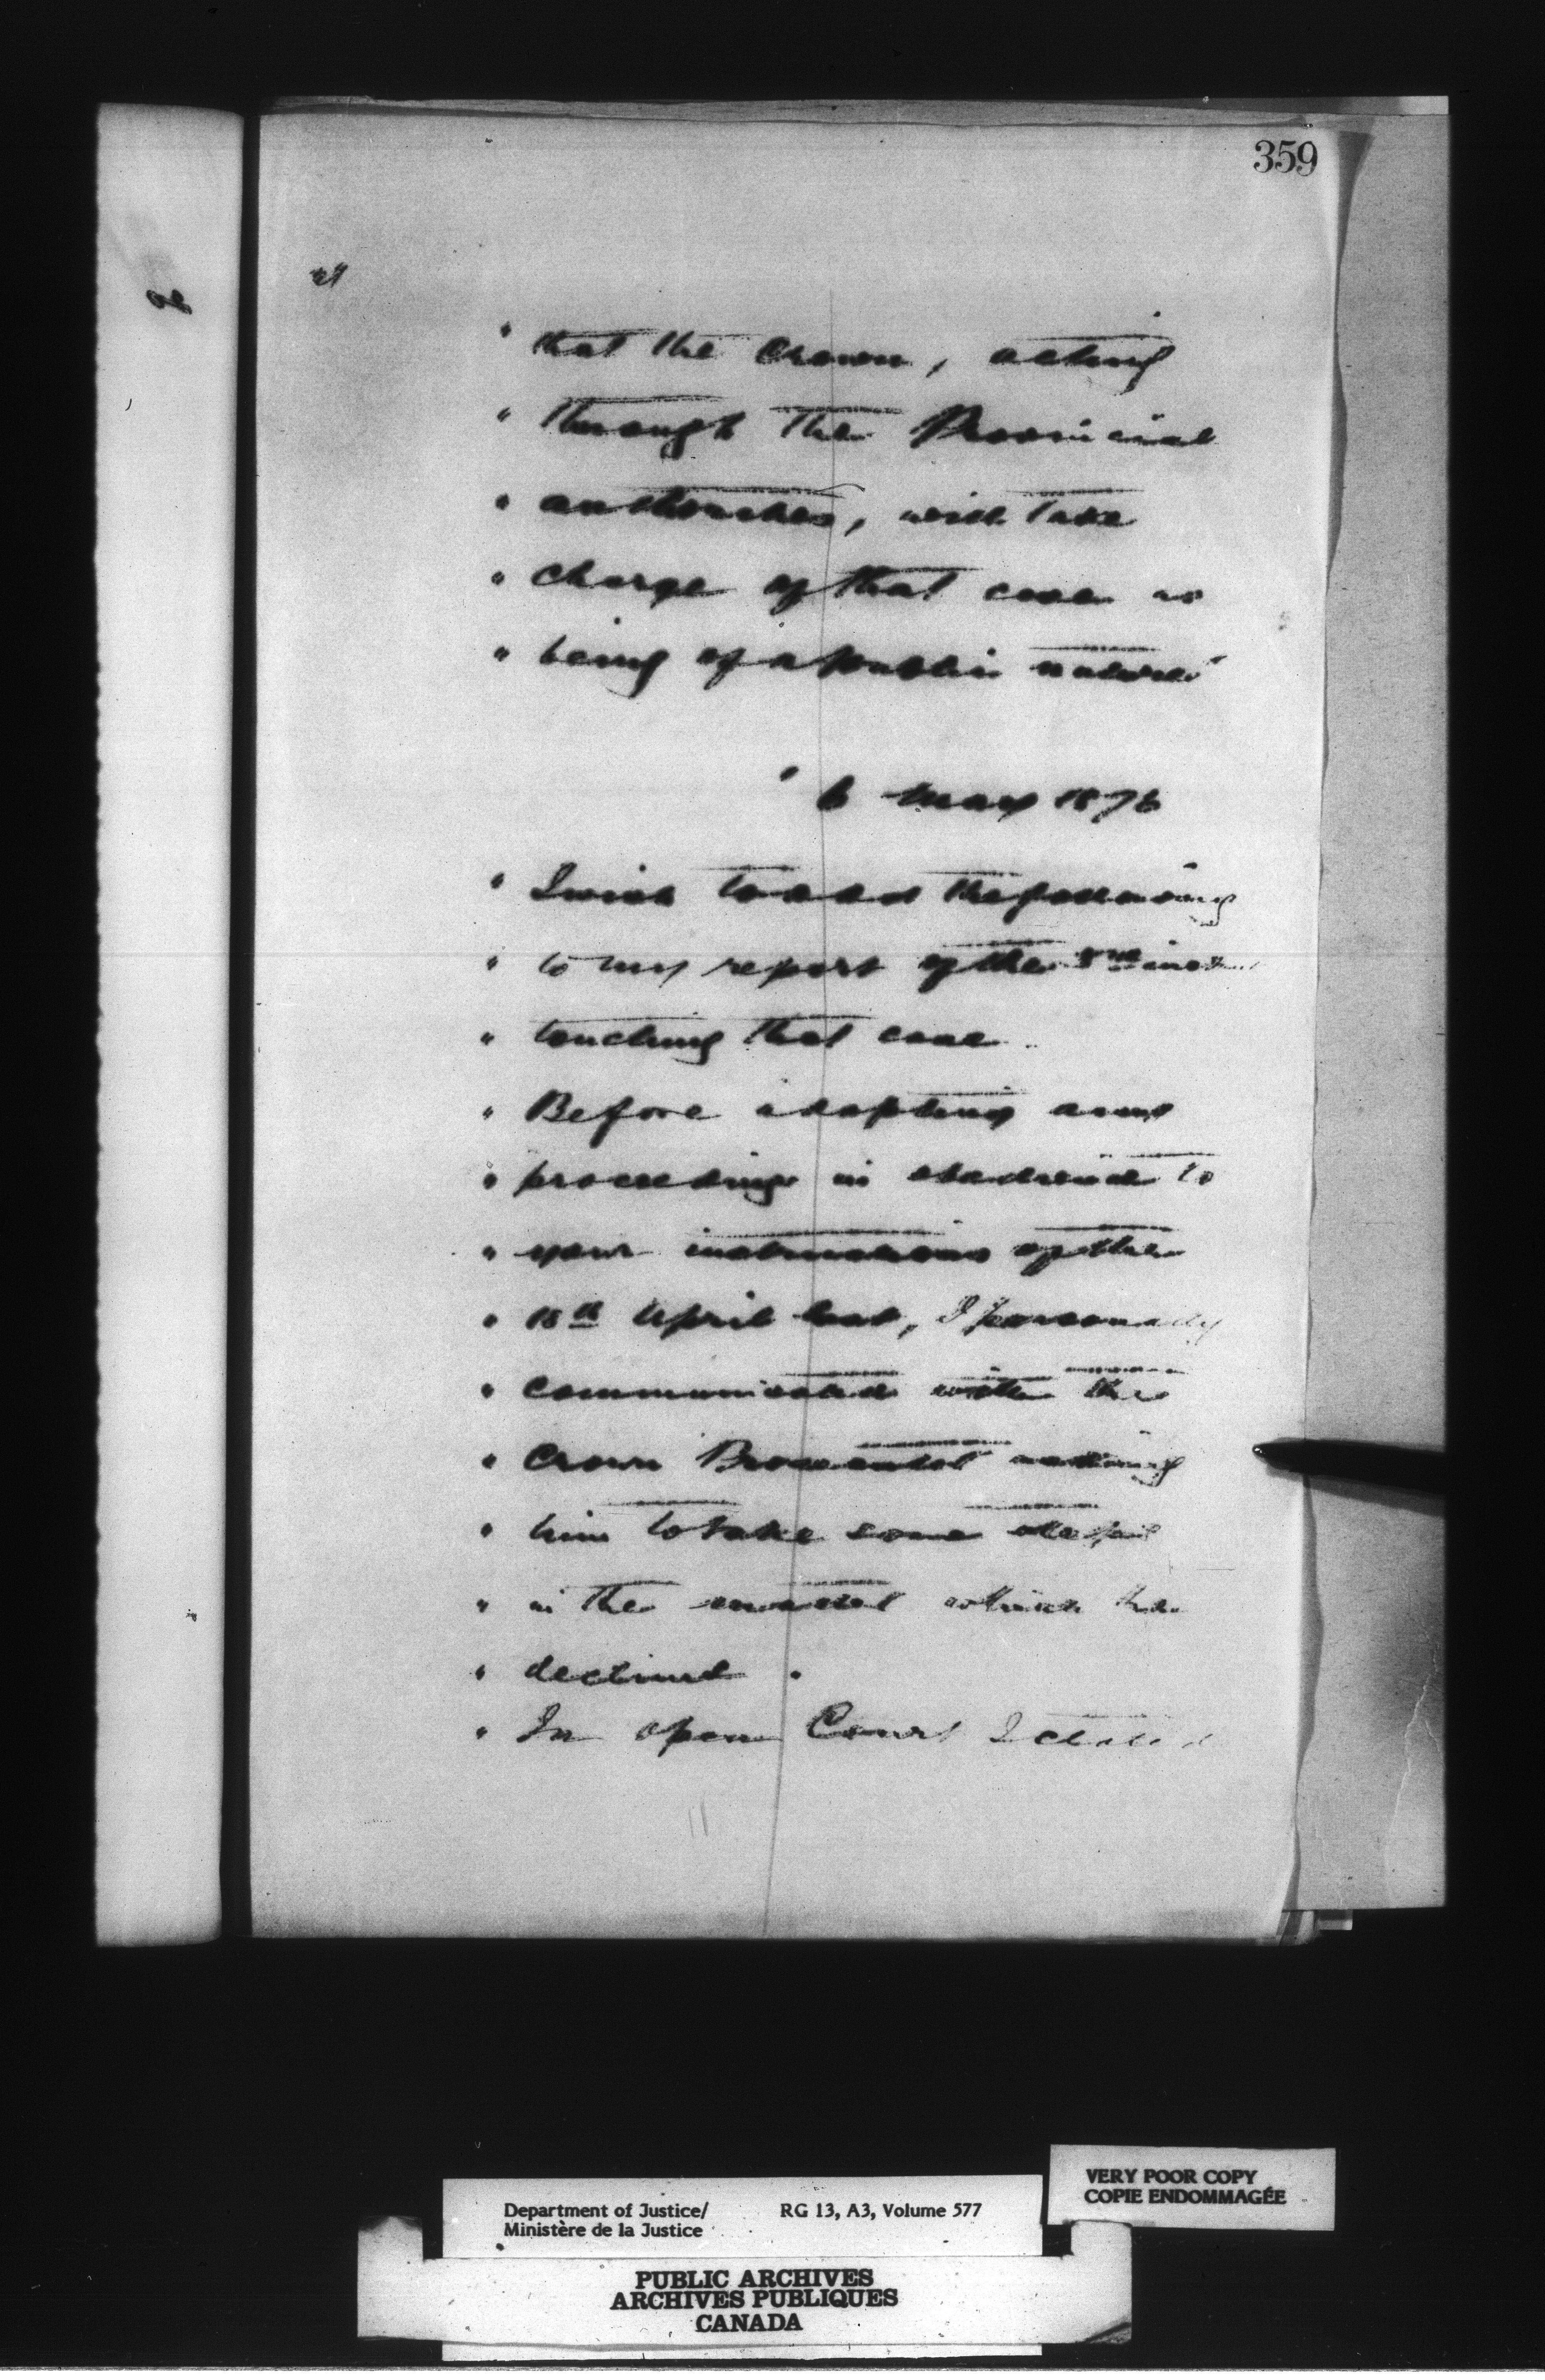 359
" that the Crown, acting
" through the Provincial
" authorities, will take
" charge of that case as
" being of a public nature"
" 6 May 1876
" I wish to add the following
" to my report of the inst.
" touching that case.
" Before adopting any
" proceedings in obedience to
" your instructions of the
" 18th April last, I personally
" communicated with the
" Crown Prosecutor asking
" him to take some steps
" in the matter which he
" declined.
" In open Court I stated
Department of Justice/
Ministère de la Justice
RG 13, A3, Volume 577
VERY POOR COPY
COPIE ENDOMMAGÉE
PUBLIC ARCHIVES
ARCHIVES PUBLIQUES
CANADA